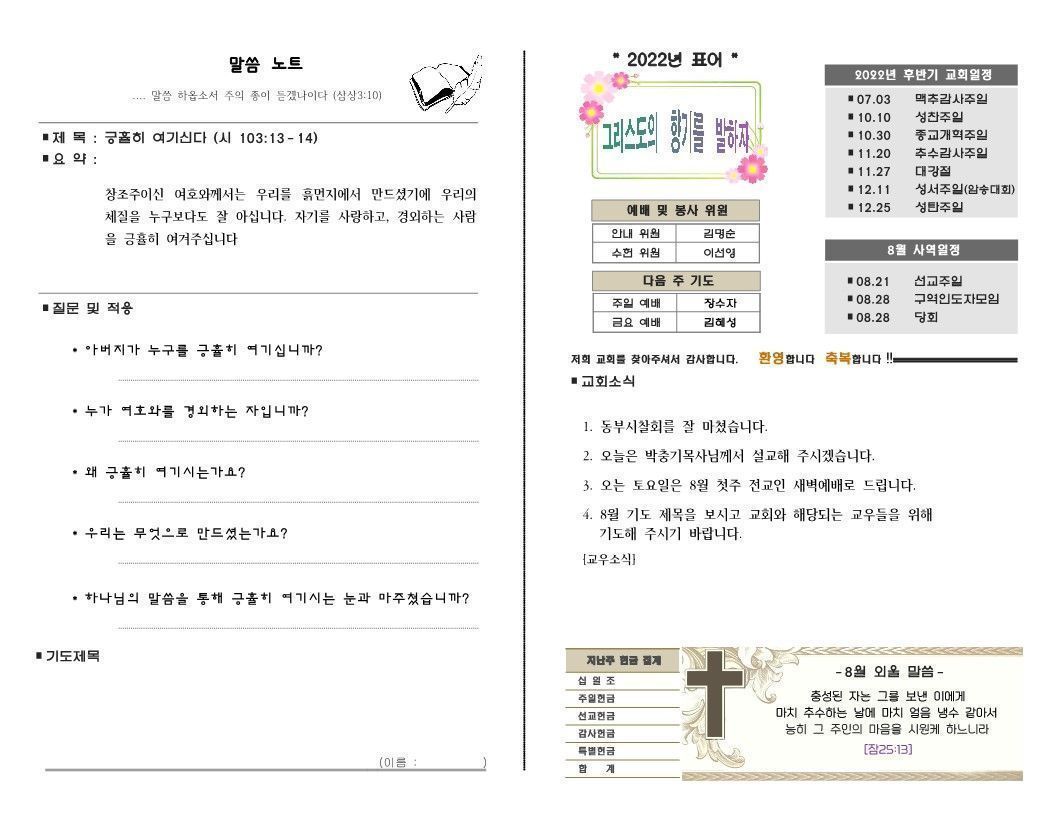 말씀 노트
.... 말씀 하옵소서 주의 종이 듣겠나이다 (삼상3:10)
■ 제 목 : 긍휼히 여기신다 (시 103:13-14)
■ 요 약 :
창조주이신 여호와께서는 우리를 흙먼지에서 만드셨기에 우리의
체질을 누구보다도 잘 아십니다. 자기를 사랑하고, 경외하는 사람
을 긍휼히 여겨주십니다
■ 질문 및 적용
• 아버지가 누구를 긍휼히 여기십니까?
• 누가 여호와를 경외하는 자입니까?
• 왜 긍휼히 여기시는가요?
• 우리는 무엇으로 만드셨는가요?
• 하나님의 말씀을 통해 긍휼히 여기시는 눈과 마주쳤습니까?
■ 기도제목
(이름 : )
* 2022년 표어 *
그리스도의 향기를 발하자
예배 및 봉사 위원
안내 위원 김명순
수헌 위원 이선영
다음 주 기도
주일 예배 장수자
금요 예배 김혜성
2022년 후반기 교회일정
■ 07.03 맥추감사주일
■ 10.10 성찬주일
■ 10.30 종교개혁주일
■ 11.20 추수감사주일
■ 11.27 대강절
■ 12.11 성서주일(암송대회)
■ 12.25 성탄주일
8월 사역일정
■ 08.21 선교주일
■ 08.28 구역인도자모임
■ 08.28 당회
저희 교회를 찾아주셔서 감사합니다. 환영합니다 축복합니다 !!
■ 교회소식
1. 동부시찰회를 잘 마쳤습니다.
2. 오늘은 박충기목사님께서 설교해 주시겠습니다.
3. 오는 토요일은 8월 첫주 전교인 새벽예배로 드립니다.
4. 8월 기도 제목을 보시고 교회와 해당되는 교우들을 위해
기도해 주시기 바랍니다.
{교우소식}
지난주 헌금 집계
십 일 조
주일헌금
선교헌금
감사헌금
특별헌금
합 계
-8월 외울 말씀-
충성된 자는 그를 보낸 이에게
마치 추수하는 날에 마치 얼음 냉수 같아서
능히 그 주인의 마음을 시원케 하느니라
[잠25:13]